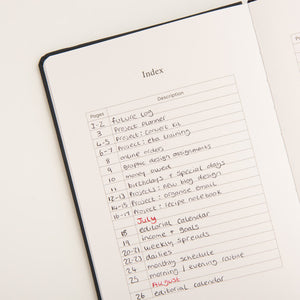 Index
Pages Description
1-2 future log
3 Project planner
4-5 Project: artwork kit
6-7 Project: eba training
8 online orders
9 Graphic design assignments
10 money owed
11 birthdays + special days
12-13 Projects: new blog design
14-15 Project: organise email
16-17 Project: recipe notebook
July
18 editorial calendar
19 income + goals
20-21 weekly spreads
22-23 dailies
24 monthly schedule
25 morning / evening routine
August
26 editorial calendar